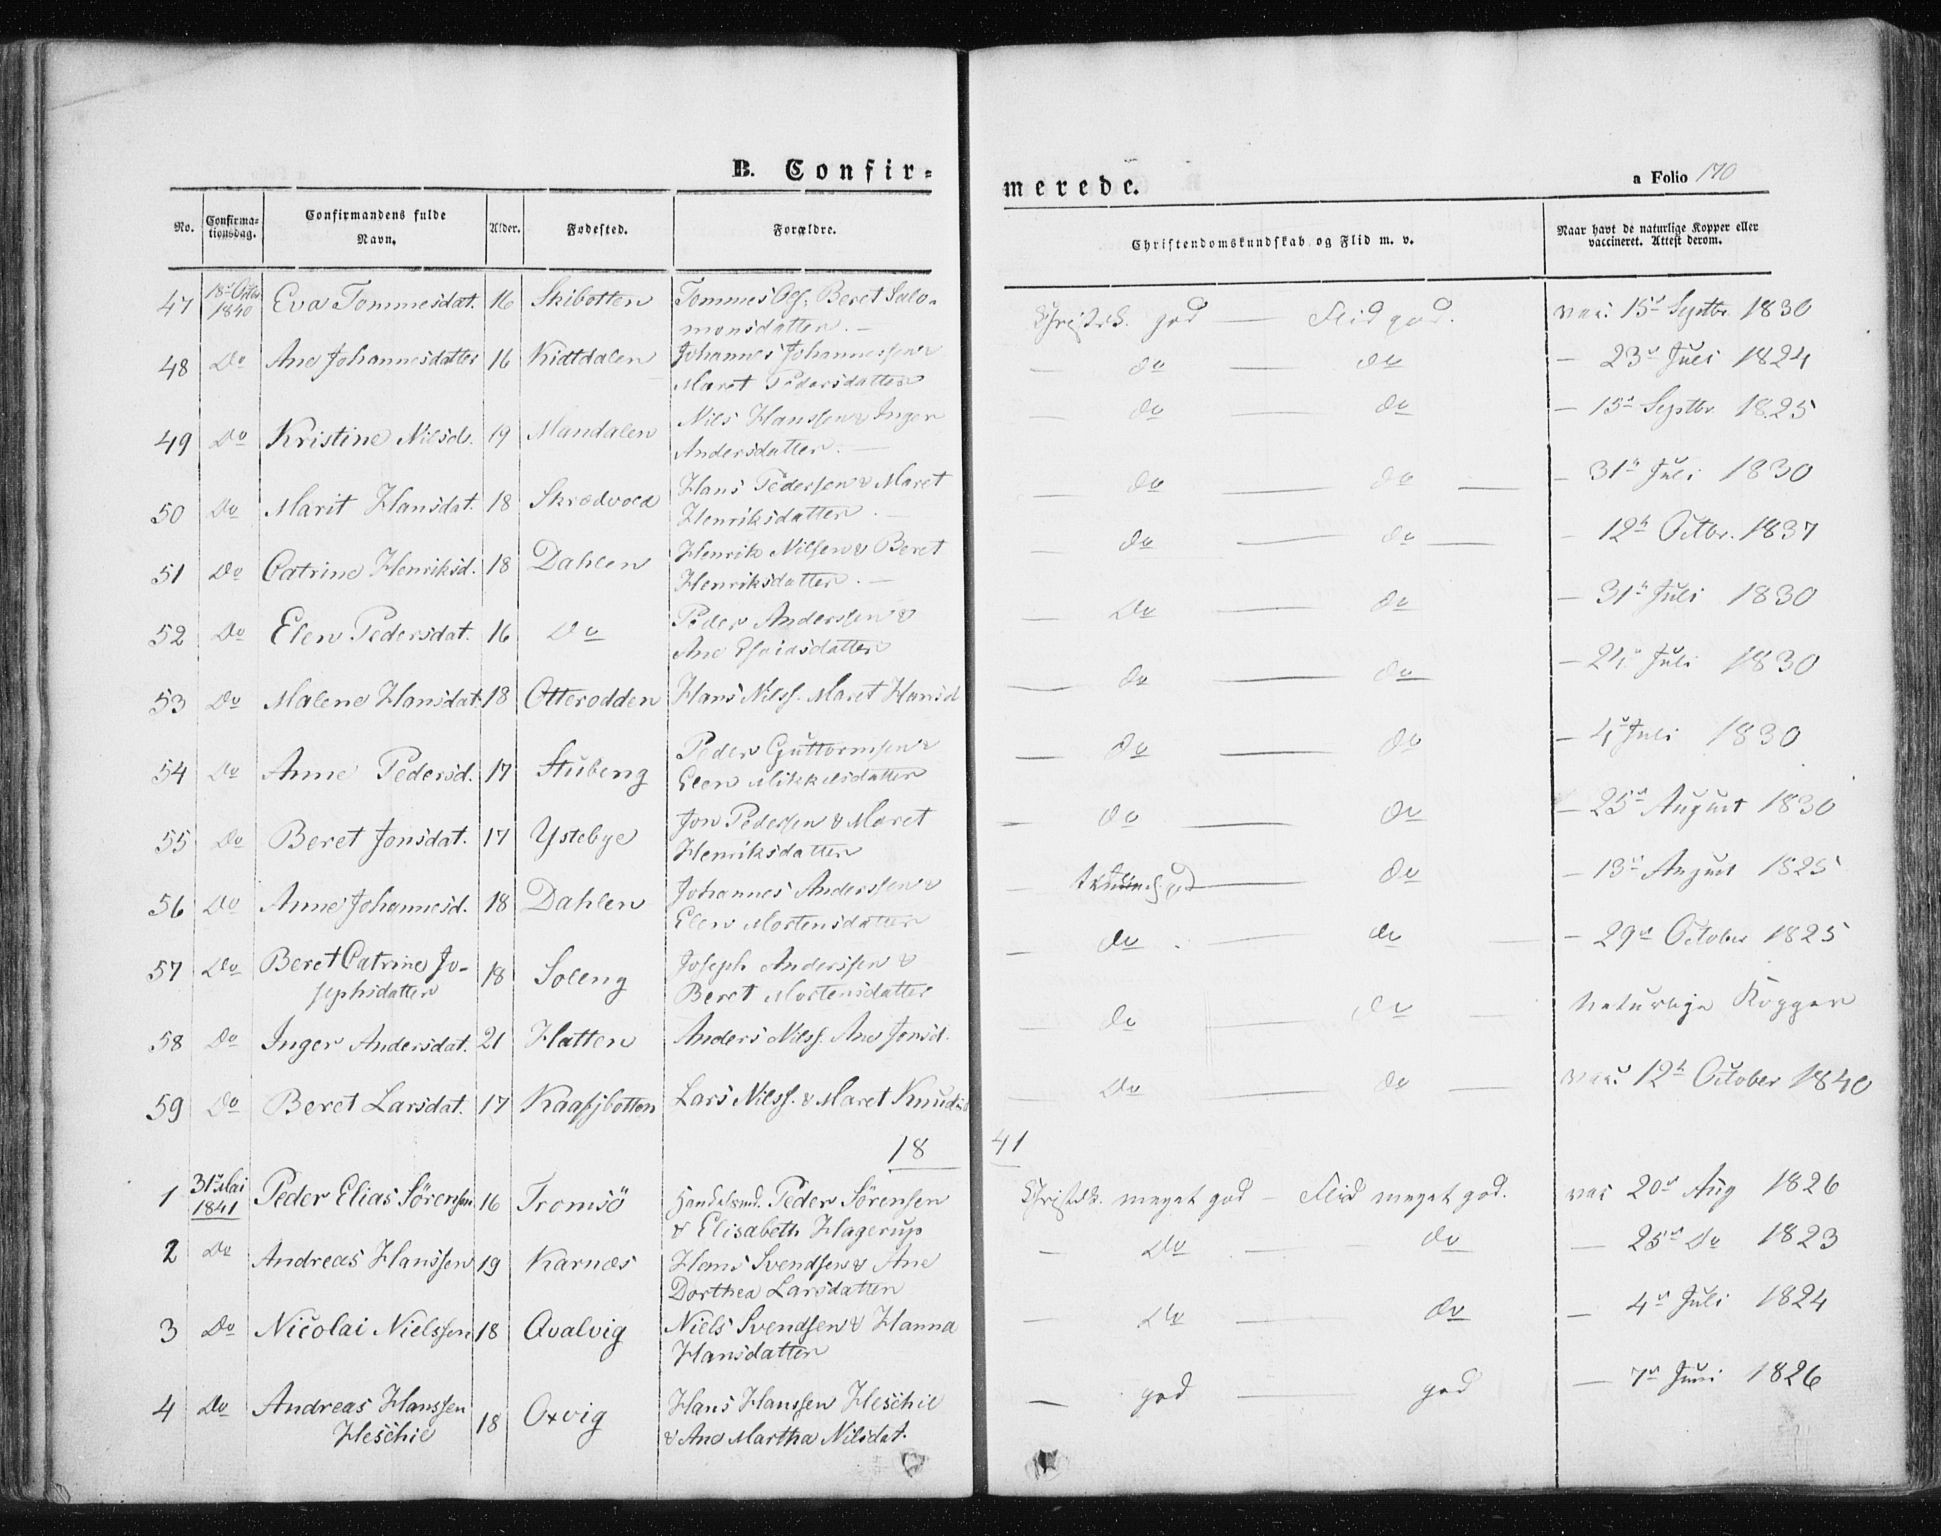 B. Confir=
merede.
a Folio 170
No.
Confirma-
tionsdag.
Confirmandens fulde
Navn.
Alder.
Fødested.
Forældre.
Christendomskundskab og Flid m. v.
Naar havt de naturlige Kopper eller
vaccineret. Attest derom.
47 18de Octbr 1840 Eva Tommesdat. 16 Skibotten Tommes Ols. Beret Salo-
monsdatter. — Christdk. god — Flid god. vac. 15de Septbr. 1830
48 Do Ane Johannesdatter 16 Kidtdalen Johannes Johannessen &
Maret Pedersdatter — do — do — 23de Juli 1824
49 Do Kristine Nilsd. 19 Mandalen Nils Hanssen & Inger
Andersdatter. — — do — do — 15de Septbr. 1825
50 Do Marit Hansdat. 18 Skrædvold Hans Pedersen & Maret
Henriksdatter. — — do — do — — 31te Juli 1830
51 Do Catrine Henriksd. 18 Dahlen Henrik Nilsen & Beret
Henriksdatter. — — do — do — — 12te Octbr. 1837
52 Do Elen Pedersdat. 16 Do Peder Anderssen &
Ane Esaiasdatter — Do — do — 31te Juli 1830
53 Do Malene Hansdat. 18 Otterodden Hans Nilss. Maret Hansd — do — do — 24de Juli 1830
54 Do Anne Pedersd. 17 Stubeng Peder Guttormsen &
Elen Mikkelsdatter — do — do — 4de Juli 1830
55 Do Beret Jonsdat. 17 Ystebye Jon Pedersen & Maret
Henriksdatter — do — do — 25de August 1830
56 Do Anne Johannesd. 18 Dahlen Johannes Anderssen &
Elen Mortensdatter — god — do — 13de August 1825
57 Do Beret Catrine Jo-
sephsdatter 18 Soleng Joseph Anderssen &
Beret Mortensdatter — do — do — 29de October 1825
58 Do Inger Andersdat. 21 Hatten Anders Nilss. Ane Jonsd. — do — do — Naturlige Kopper
59 Do Beret Larsdat. 17 Kaafjbotten Lars Nilss. & Maret Knudsd — Do — do — vac. 12te October 1840
18 41
1 31te Mai 1841 Peder Elias Sörensen 16 Tromsö Handelsmd. Peder Sörensen
& Elisabeth Hagerup Christdk. meget god — Flid meget god. vac 20de Aug 1826
2 Do Andreas Hanssen 19 Karnæs Hans Svendsen & Ane
Dorthea Larsdatter — Do — do — 25de Do 1823
3 Do Nicolai Nielssen 18 Qvalvig Niels Svendsen & Hanna
Hansdatter — Do — do — 4de Juli 1824
4 Do Andreas Hanssen
Heschie 18 Oxvig Hans Hanssen Heschie
& Ane Martha Nilsdat. — god — god — 7de Juni 1826